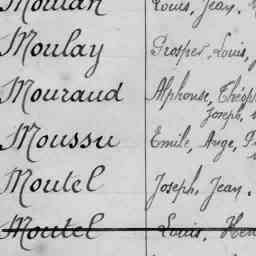 Moulan Louis, Jean.
Moulay Prosper, Louis,
Mouraud Alphonse, Théoph
Joseph,
Moussu Emile, Ange,
Moutel Joseph, Jean.
Moutel Louis, Hen